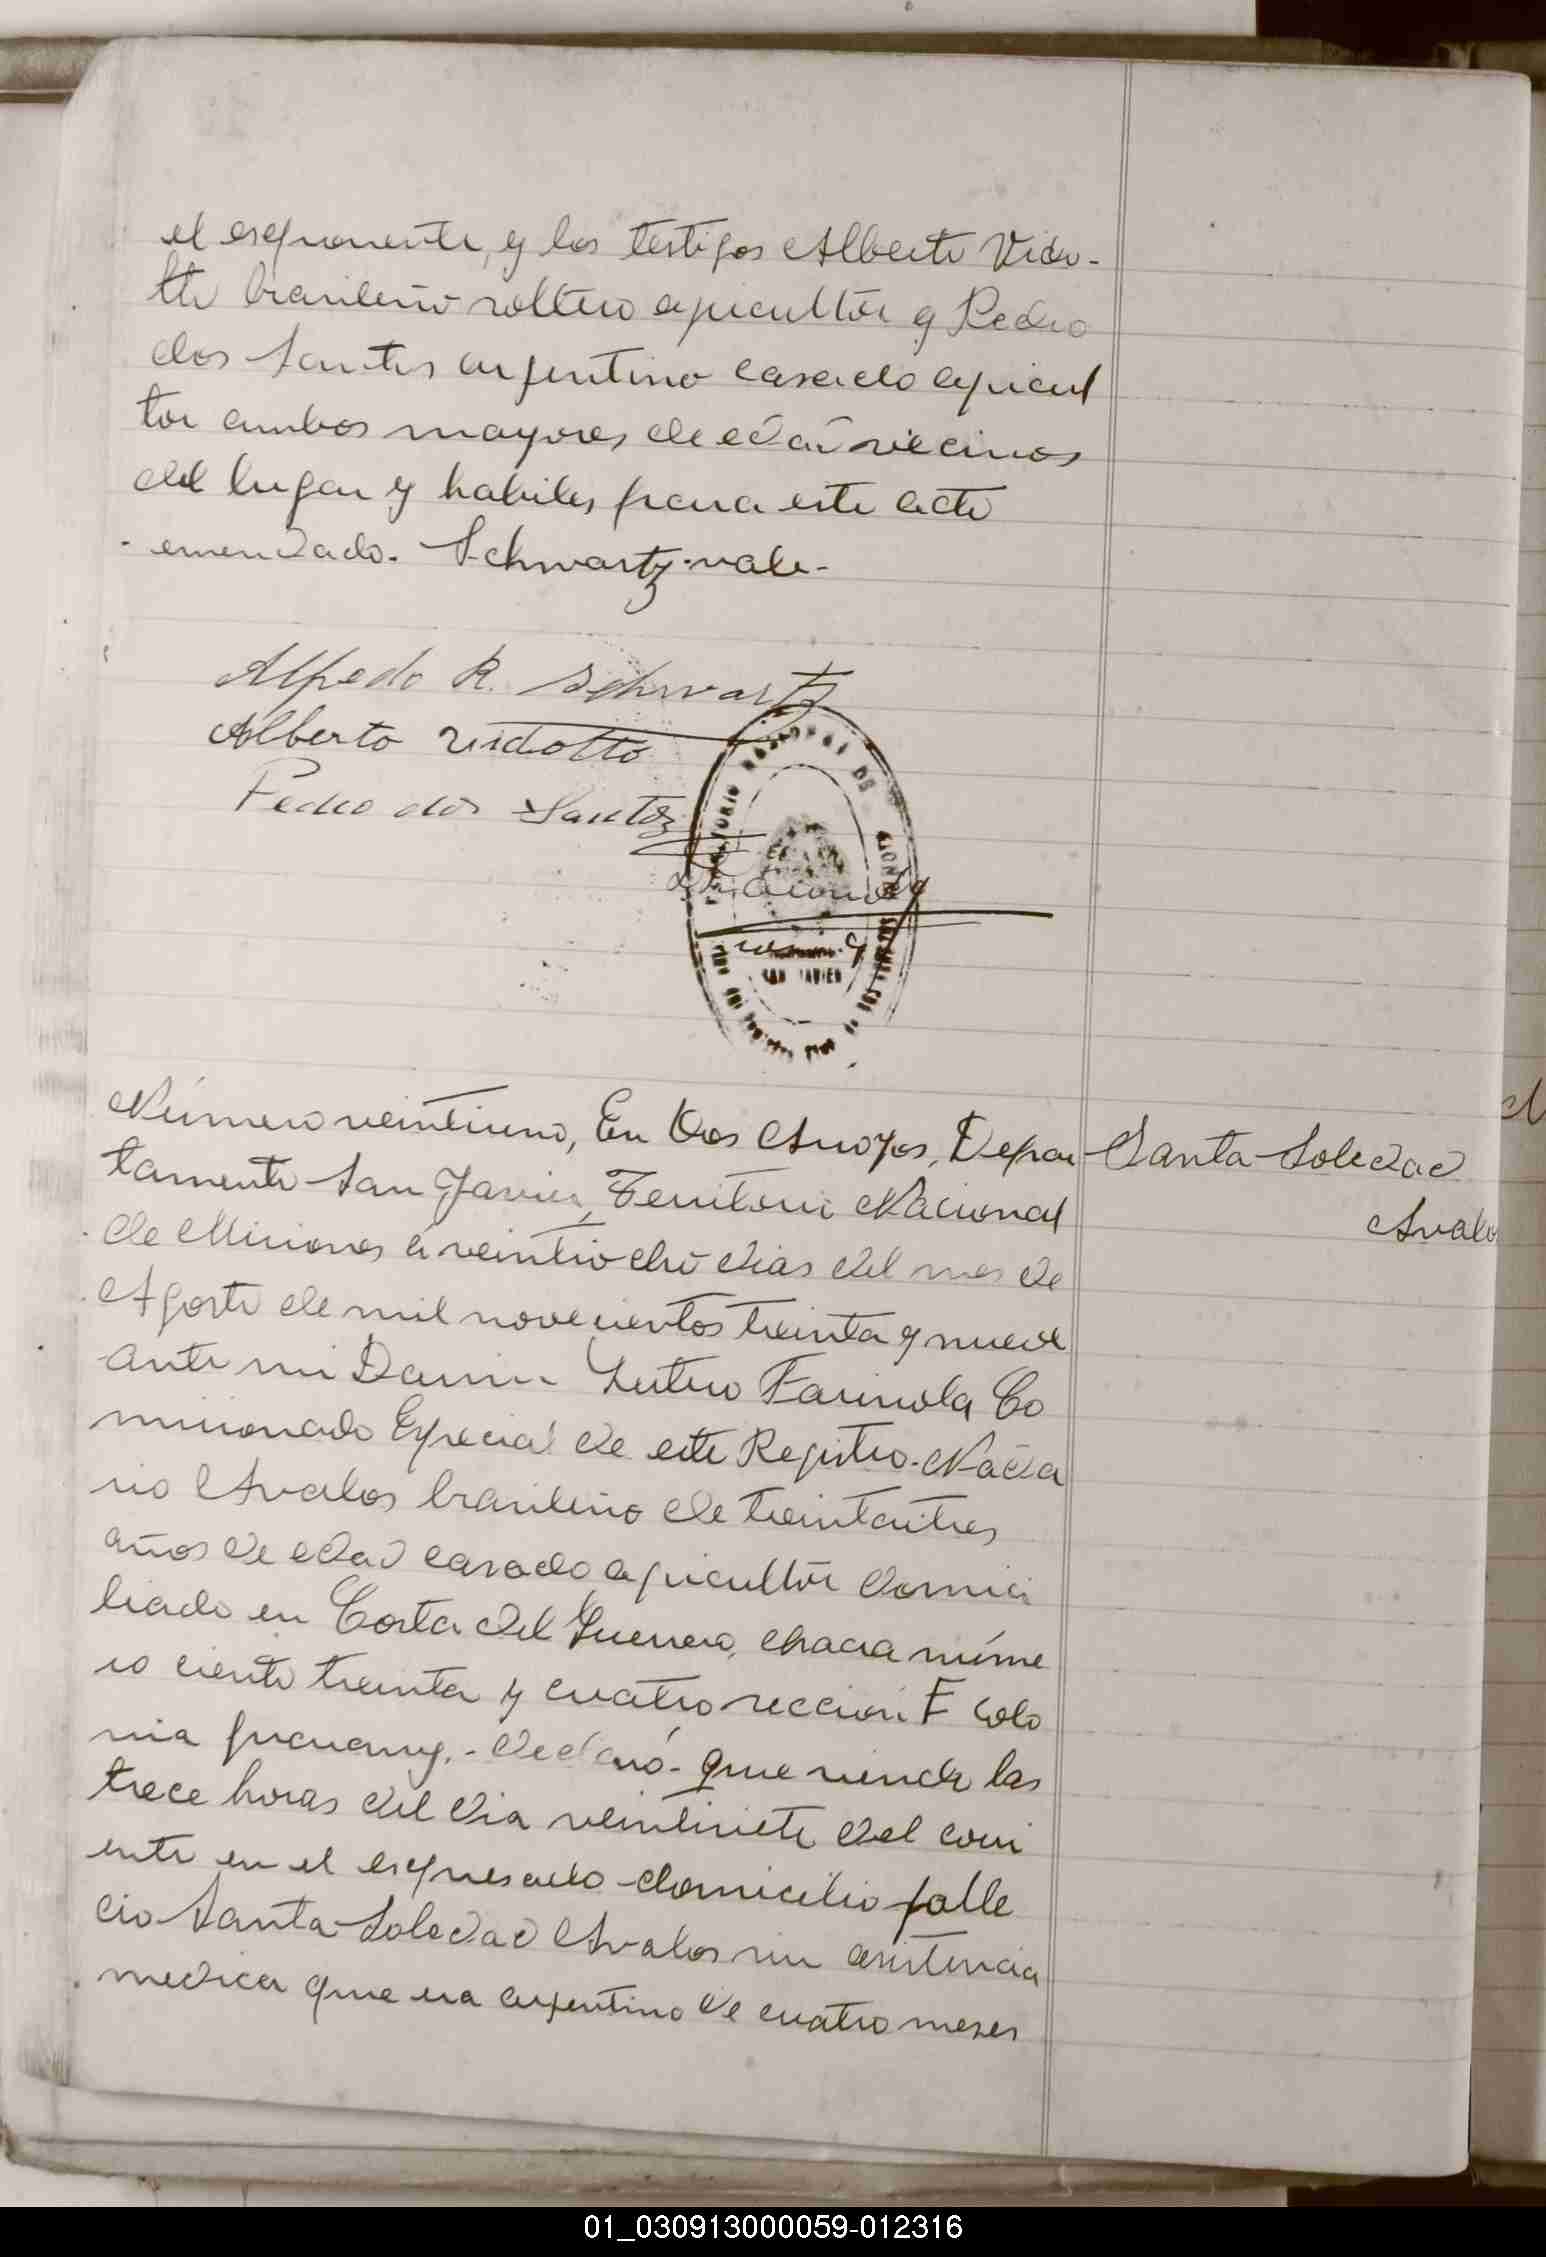 el exponente, y los testigos Alberto Vido-
tto brasileño soltero agricultor y Pedro
dos Santos argentino casado agricul
tor ambos mayores de edad vecinos
del lugar y habiles para este acto
- emendado. Schwartz-vale-
Alfredo R. Schwartz
Alberto Vidotto
Pedro dos Santos
SAN JAVIER
Número veintiuno, En Dos Arroyos, Depar
Santa Soledad
tamento San Javier, Territorio Nacional
Avalo
de Misiones a veintiocho dias del mes de
Agosto de mil novecientos treinta y nueve
ante mi Lutero Farinola Co
misionado Especial de este Registro. Naza
rio Avalos brasileño de treintaitres
años de edad casado agricultor domici
liado en Costa del Guerrero, chacra núme
ro ciento treinta y cuatro seccion F colo
nia declaró- que siendo las
trece horas del dia veintisiete del corri
ente en el expresado domicilio falle
cio Santa Soledad Avalos sin asistencia
medica que era argentino de cuatro meses
01_030913000059-012316